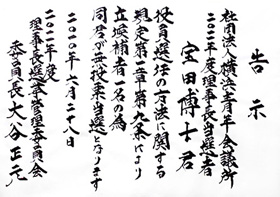 告示
社団法人横浜青年会議所
二〇二二年度理事長当選者
宝田博士君
役員選任の方法に関する
規定第二章第九条により
立候補者一名の為
同君が無投票当選となります
二〇二一年六月二十八日
二〇二二年度
理事長選挙管理委員会
委員長大谷正元